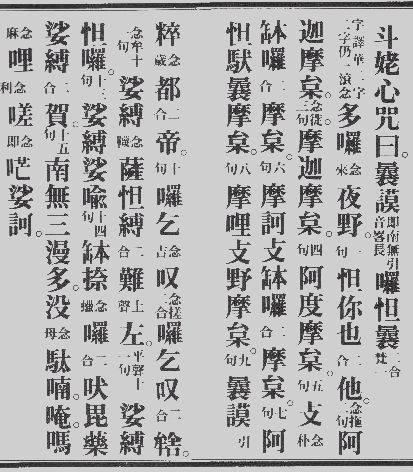 斗姥心咒曰曩謨即南無引音畧長囉怛曩二合梵一
字譯華二字二字仍一滾念多囉念來夜野句怛你也二合他。念拖句阿
迦摩枲。念徙三句摩迦摩枲。四句阿度摩枲。五句攴念朴
缽囉二合摩枲。六句摩訶攴缽囉二合摩枲。七句阿
怛馱曩摩枲。八句摩哩攴野摩枲。九句曩謨引
粹念歲都二合帝。十句囉乞念吉叹念搓二合囉乞叹二合
娑縛念韈薩怛縛二合難上聲左。平聲十一句娑縛
怛囉。句十三娑縛娑喻句十四缽捺念蠟囉二合吠毘藥
娑縛二合賀。句十五南無三漫多。没念母馱喃。唵嗎
念麻哩念利嗟念即娑訶。